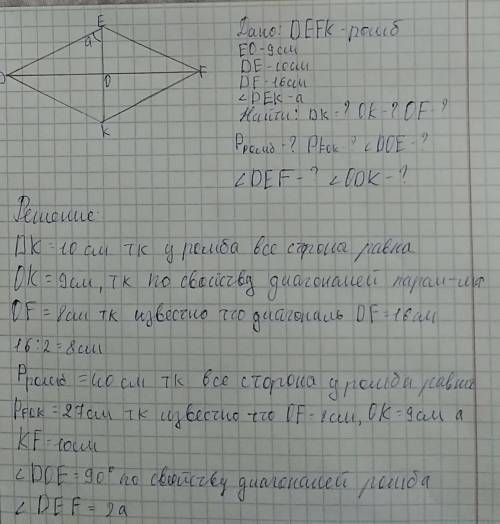 E
a
D
O
F
K
Дано: DEFK-ромб
EO-9см
DE-10см
DF-16см
∠DEK-a
Найти: DK=? OK-? OF-?
Pромб-? PFOK-? ∠DOE-?
∠DEF-? ∠ODK-?
Решение:
DK=10см тк у ромба все сторона равна
OK=9см, тк по свойству диагоналей парам-ма
OF=8см тк известно что диагональ DF=16см
16:2=8см
Pромб=40см тк все сторона у ромба равне
PFOK=27см тк известно что OF=8см, OK=9см а
KF=10см
∠DOE=90° по свойству диагоналей ромба
∠DEF=2a